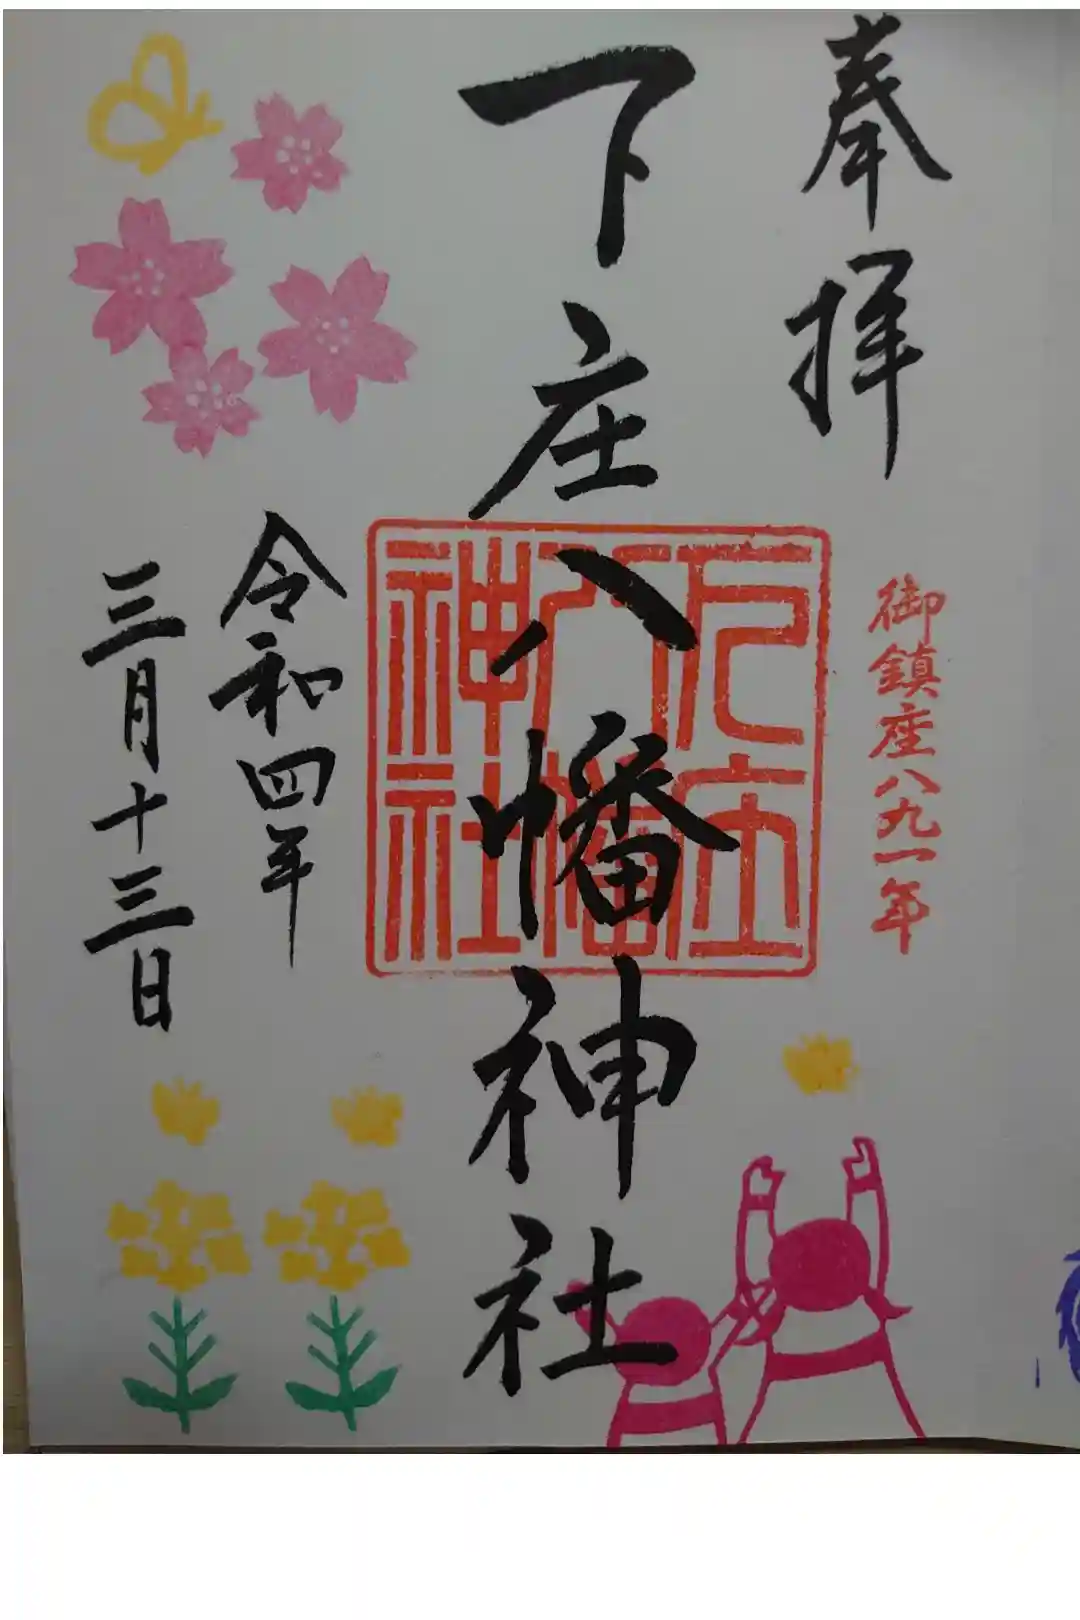 奉拝
御鎮座八九一年
下庄八幡神社
下庄
八幡
神社
令和四年
三月十三日